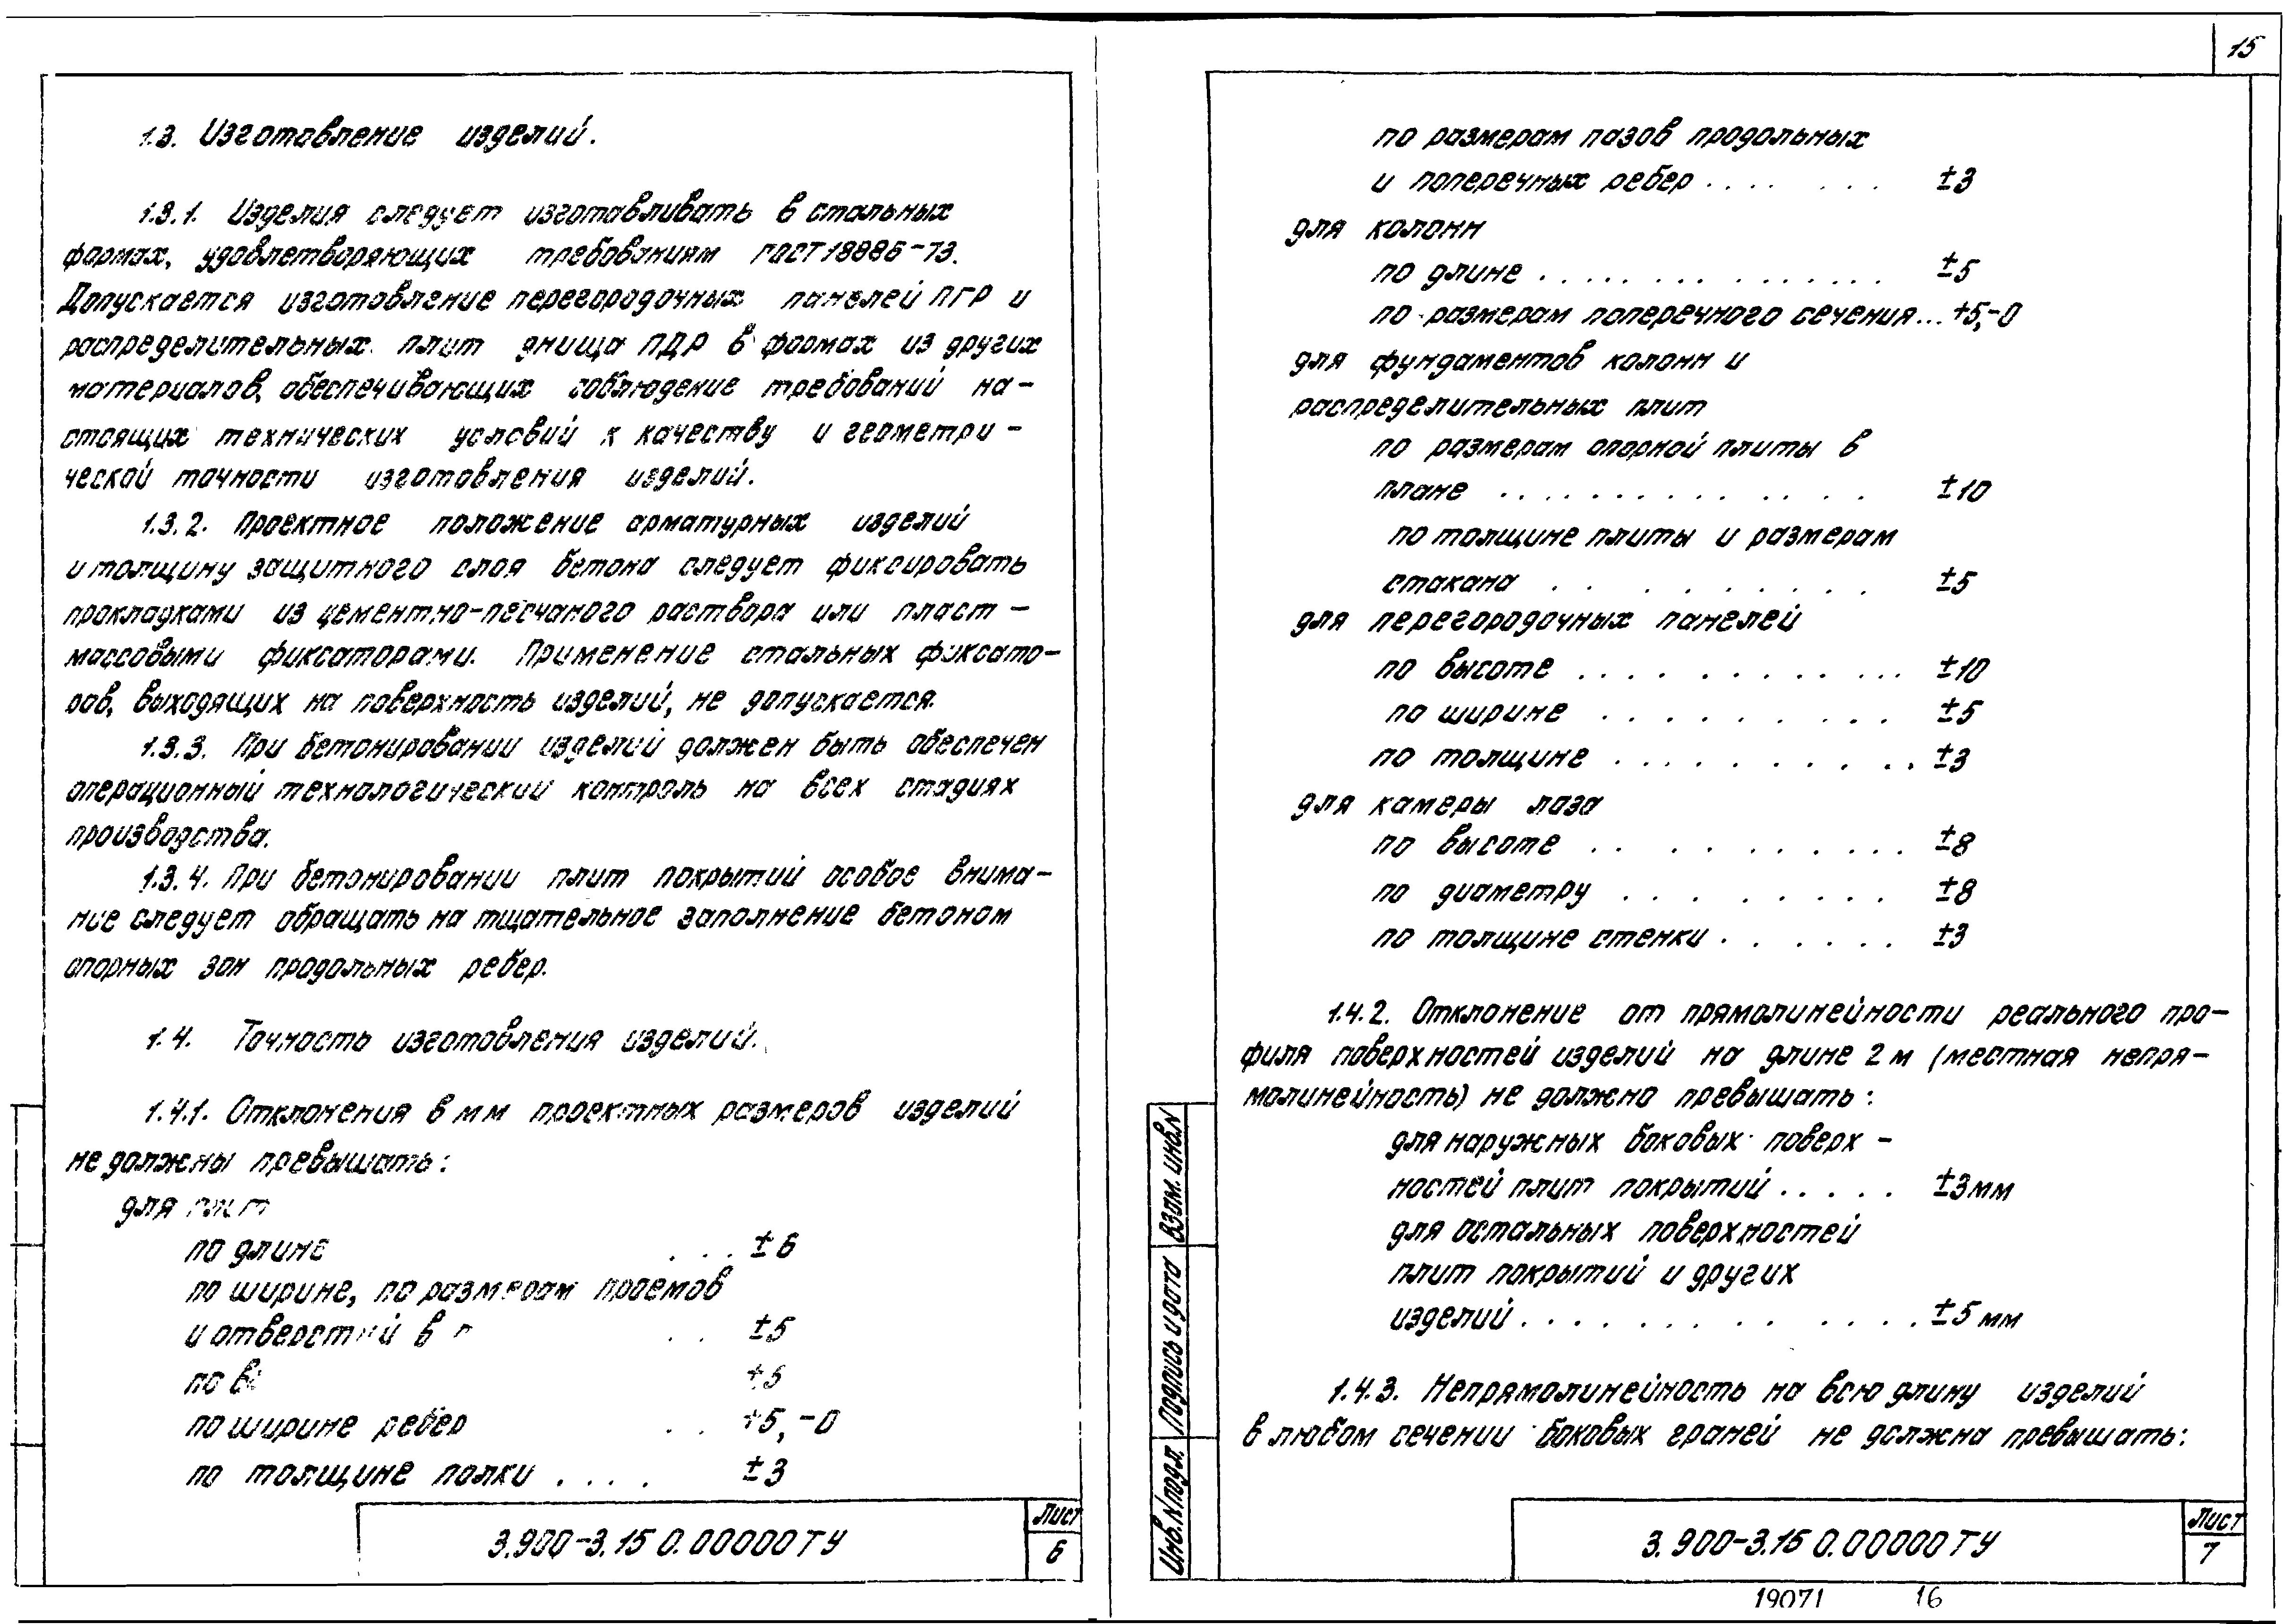 1.3. Изготовление изделий.
1.3.1. Изделия следует изготавливать в стальных
формах, удовлетворяющих требованиям ГОСТ 18886-73.
Допускается изготовление перегородочных панелей ПГР и
распределительных плит днища ПДР в формах из других
материалов, обеспечивающих соблюдение требований на-
стоящих технических условий к качеству и геометри-
ческой точности изготовления изделий.
1.3.2. Проектное положение арматурных изделий
и толщину защитного слоя бетона следует фиксировать
прокладками из цементно-песчаного раствора или пласт-
массовыми фиксаторами. Применение стальных фиксато-
ров, выходящих на поверхность изделий, не допускается.
1.3.3. При бетонировании изделий должен быть обеспечен
операционный технологический контроль на всех стадиях
производства.
1.3.4. При бетонировании плит покрытий особое внима-
ние следует обращать на тщательное заполнение бетоном
опорных зон продольных ребер.
1.4. Точность изготовления изделий.
1.4.1. Отклонения в мм проектных размеров изделий
не должны превышать:
для плит
по длине ... ±6
по ширине, по размерам проемов
и отверстий в .. ±5
по ±5
по ширине ребер .. +5,-0
по толщине полки .... ±3
3.900-3.15 0.00000ТУ
Лист
6
15
по размерам пазов продольных
и поперечных ребер .... ... ±3
для колонн
по длине ............... ±5
по размерам поперечного сечения... +5,-0
для фундаментов колонн и
распределительных плит
по размерам опорной плиты в
плане ............. ±10
по толщине плиты и размерам
стакана .......... ±5
для перегородочных панелей
по высоте ............ ±10
по ширине .......... ±5
по толщине ........... ±3
для камеры лаза
по высоте .......... ±8
по диаметру ......... ±8
по толщине стенки ....... ±3
1.4.2. Отклонение от прямолинейности реального про-
филя поверхностей изделий на длине 2 м (местная непря-
молинейность) не должно превышать:
для наружных боковых поверх-
ностей плит покрытий ..... ±3 мм
для остальных поверхностей
плит покрытий и других
изделий ............. ±5 мм
1.4.3. Непрямолинейность на всю длину изделий
в любом сечении боковых граней не должна превышать:
Инв.N подл. Подпись и дата Взам. инв.N
3.900-3.15 0.00000ТУ
Лист
7
19071 16